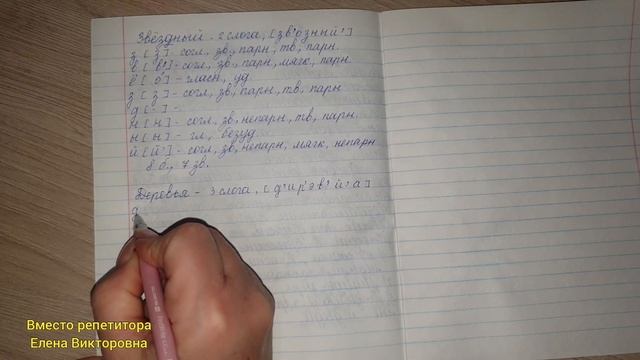 Звёздный - 2 слога, [зв'озный']
з [з] - согл, зв, парн, тв, парн.
в [в'] - согл, зв, парн, мягк, парн.
ё [о] - гласн, уд
з [з] - согл, зв, парн, тв, парн
д [-] -
н [н] - согл, зв, непарн, тв, парн.
ы [ы] - гл, безуд.
й [й'] - согл, зв, непарн, мягк, непарн
8 б, 7 зв.
Деревья - 3 слога, [д'ир'эв'й'а]
д
Вместо репетитора
Елена Викторовна